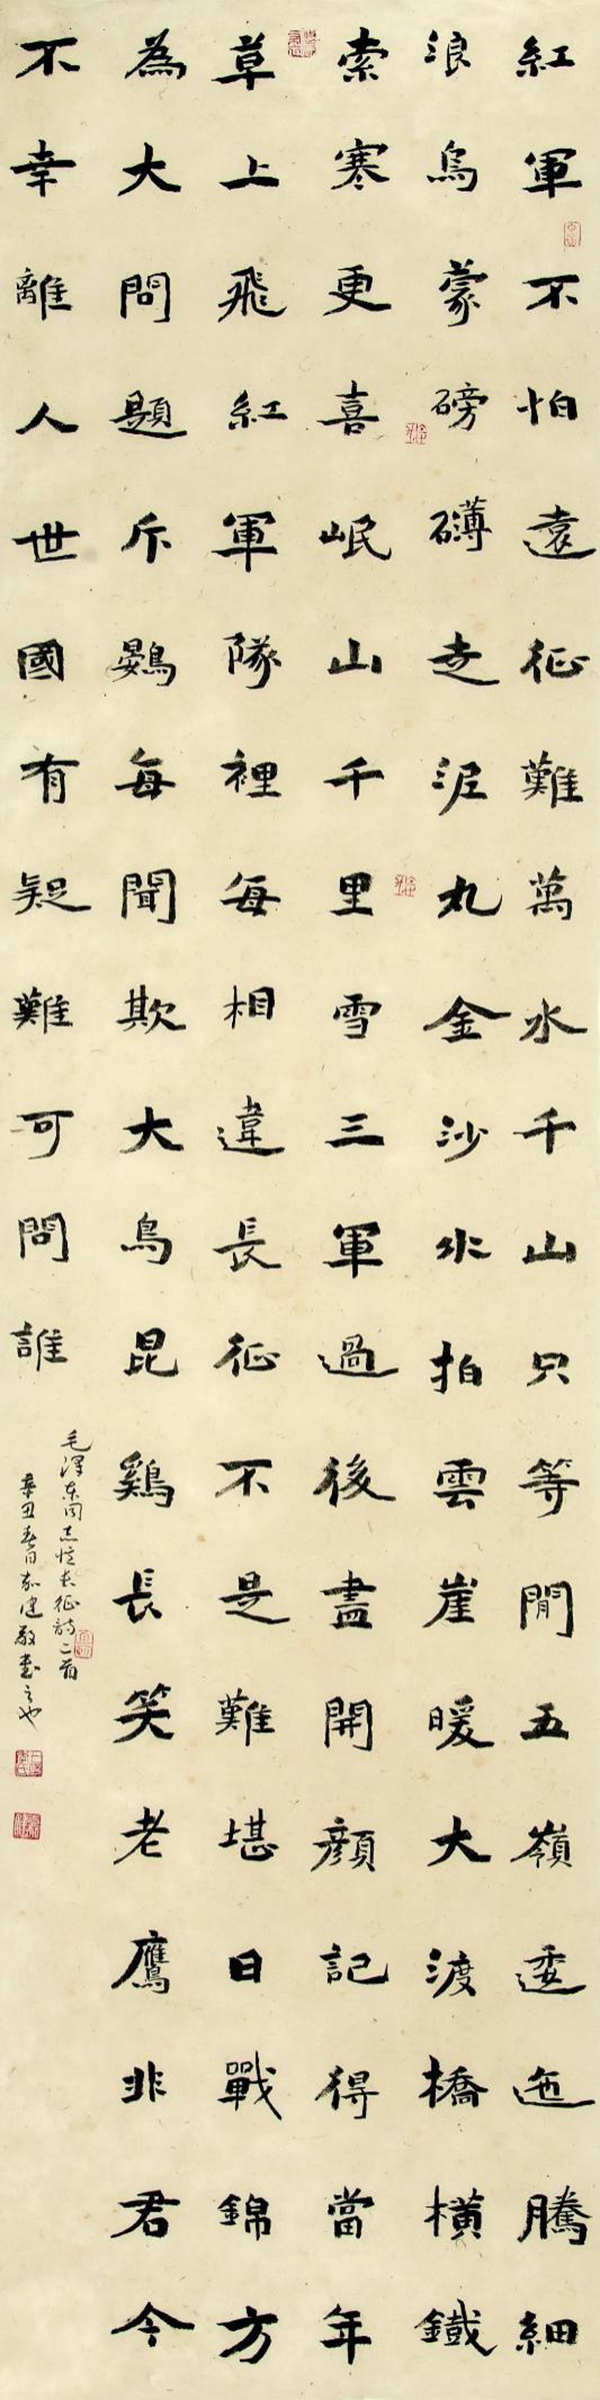 紅軍不怕遠征難萬水千山只等閒五嶺逶迤騰細
浪烏蒙磅礴走泥丸金沙水拍雲崖暖大渡橋橫鐵
索寒更喜岷山千里雪三軍過後盡開顏記得當年
草上飛紅軍隊裡每相違長征不是難堪日戰錦方
為大問題斥鷃每聞欺大鳥昆鷄長笑老鷹非君今
不幸離人世國有疑難可問誰
毛澤东同志忆长征詩二首
辛丑春日嘉健敬書之也